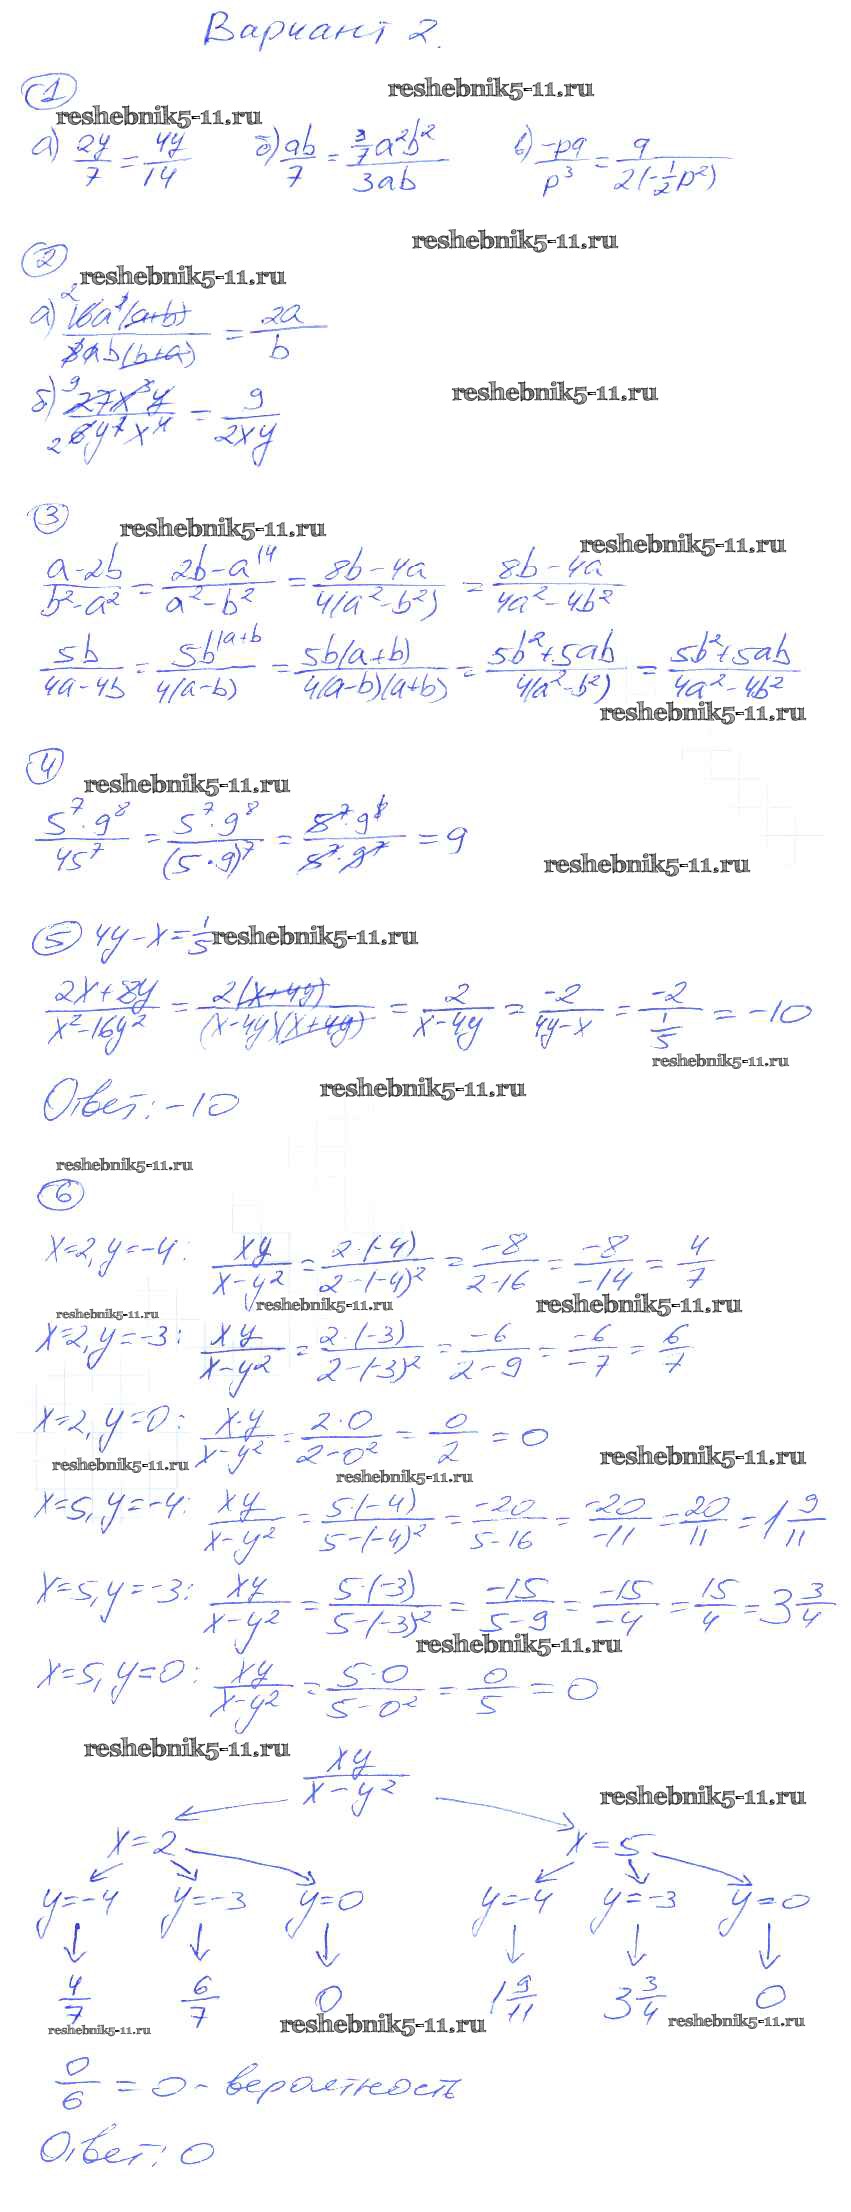 Вариант 2.
① reshebnik5-11.ru
reshebnik5-11.ru
а) 2y/7 = 4y/14 б) ab/7 = (3/7 a²b²)/(3ab) в) -pq/p³ = q/(2(-1/2 p²))
reshebnik5-11.ru
② reshebnik5-11.ru
а) 16a²(a+b)/(8ab(b+a)) = 2a/b
reshebnik5-11.ru
б) 27x³y/(6y²x⁴) = 9/(2xy)
③ reshebnik5-11.ru
reshebnik5-11.ru
(a-2b)/(b²-a²) = (2b-a)/(a²-b²) = (8b-4a)/(4(a²-b²)) = (8b-4a)/(4a²-4b²)
5b/(4a-4b) = 5b/(4(a-b)) = 5b(a+b)/(4(a-b)(a+b)) = (5b²+5ab)/(4(a²-b²)) = (5b²+5ab)/(4a²-4b²)
reshebnik5-11.ru
④ reshebnik5-11.ru
5⁷·9⁸/45⁷ = 5⁷·9⁸/(5·9)⁷ = 5⁷·9⁸/(5⁷·9⁷) = 9
reshebnik5-11.ru
⑤ 4y-x=1/5 reshebnik5-11.ru
(2x+8y)/(x²-16y²) = 2(x+4y)/((x-4y)(x+4y)) = 2/(x-4y) = -2/(4y-x) = -2/(1/5) = -10
reshebnik5-11.ru
Ответ: -10 reshebnik5-11.ru
reshebnik5-11.ru
⑥
x=2, y=-4: xy/(x-y²) = 2·(-4)/(2-(-4)²) = -8/(2-16) = -8/-14 = 4/7
reshebnik5-11.ru reshebnik5-11.ru reshebnik5-11.ru
x=2, y=-3: xy/(x-y²) = 2·(-3)/(2-(-3)²) = -6/(2-9) = -6/-7 = 6/7
x=2, y=0: x·y/(x-y²) = 2·0/(2-0²) = 0/2 = 0
reshebnik5-11.ru reshebnik5-11.ru reshebnik5-11.ru
x=5, y=-4: xy/(x-y²) = 5·(-4)/(5-(-4)²) = -20/(5-16) = -20/-11 = 20/11 = 1 9/11
x=5, y=-3: xy/(x-y²) = 5·(-3)/(5-(-3)²) = -15/(5-9) = -15/-4 = 15/4 = 3 3/4
reshebnik5-11.ru
x=5, y=0: xy/(x-y²) = 5·0/(5-0²) = 0/5 = 0
reshebnik5-11.ru
xy/(x-y²)
reshebnik5-11.ru
x=2 x=5
y=-4 y=-3 y=0 y=-4 y=-3 y=0
4/7 6/7 0 1 9/11 3 3/4 0
reshebnik5-11.ru reshebnik5-11.ru reshebnik5-11.ru
0/6 = 0 - вероятность
Ответ: 0